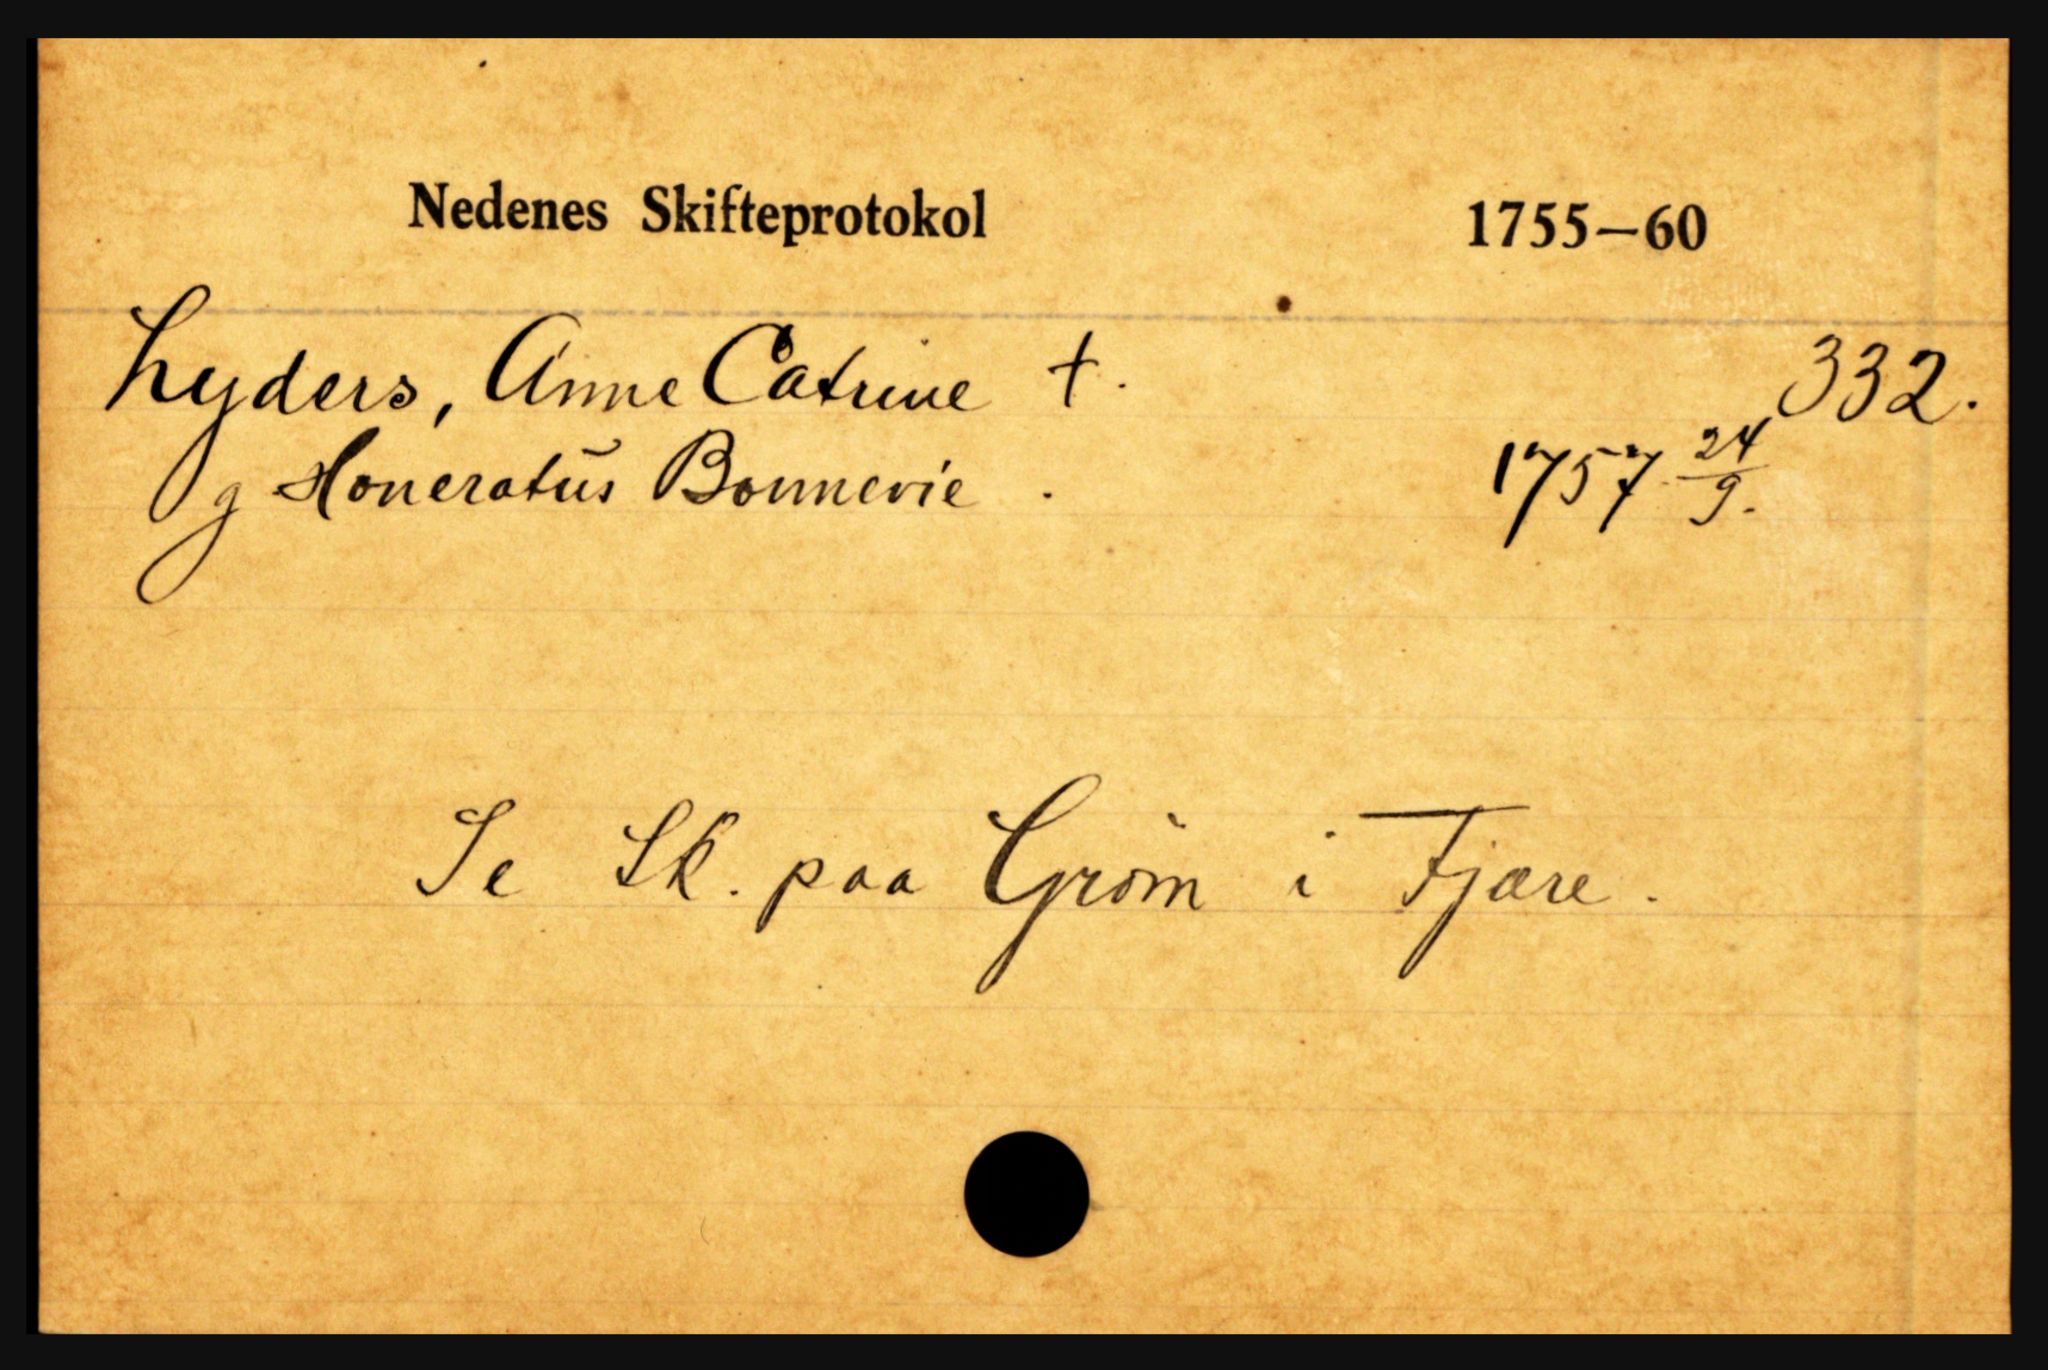 Nedenes Skifteprotokol 1755—60
Lyders, Anne Catrine †. 332.
g Honeratus Bonnevie. 1757 24/9.
Se Sk. paa Grøm i Fjære.